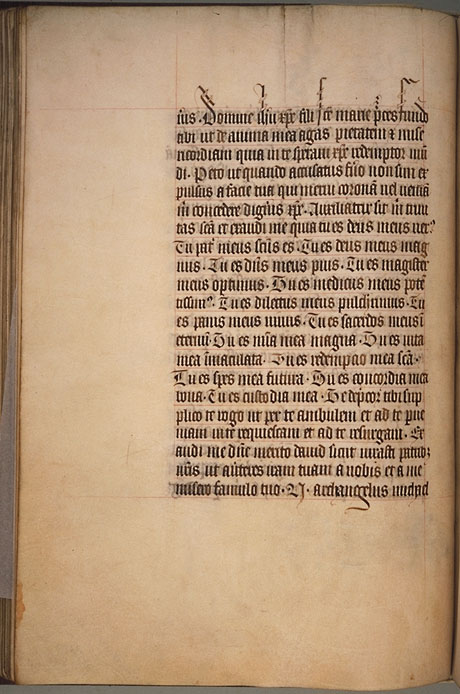 tus. Domine ihū xp̄e fili sc̄e marie p̄ces fundo
tibi ut de anima mea agas pietatem & mise
ricordiam quia in te speraui xp̄e redemptor mū
di. Peto ut quando accusatus fūo non sim ex
pulsus a facie tua qui
in concedere digneris xp̄e. Auxiliatrix sit in trini
tas sc̄a et exaudi me quia tu es deus meus uer9
Tu pat̄ meus sc̄us es. Tu es deus meus mag
nus. Tu es dn̄s meus pius. Tu es magister
meus optimus. Tu es medicus meus potē
tissim9. Tu es dilectus meus pulcherrimus. Tu
es panis meus uiuus. Tu es sacerdos meus ī
eternū. Tu es mīa mea magna. Tu es uita
mea īmaculata. Tu es redempcio mea sc̄a.
Tu es spes mea futura. Tu es concordia mea
bona. Tu es custodia mea. Te dep̄cor tibi sup
plico te rogo ut per te ambulem et ad te pue
niam in te requiescam et ad te resurgam. Ex
audi me dn̄e merito dauid sicut iurasti patrib9
nr̄is ut auferes iram tuam a nobis et a me
misero famulo tuo. V. archangelus michael